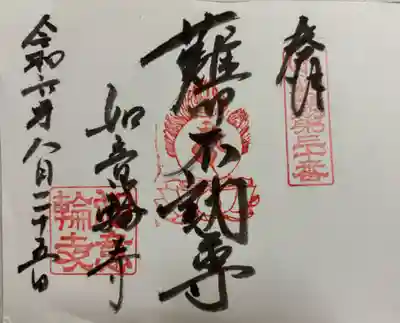 奉拝
難切不動尊
如意輪寺
令和六年八月二十五日
如意
輪寺